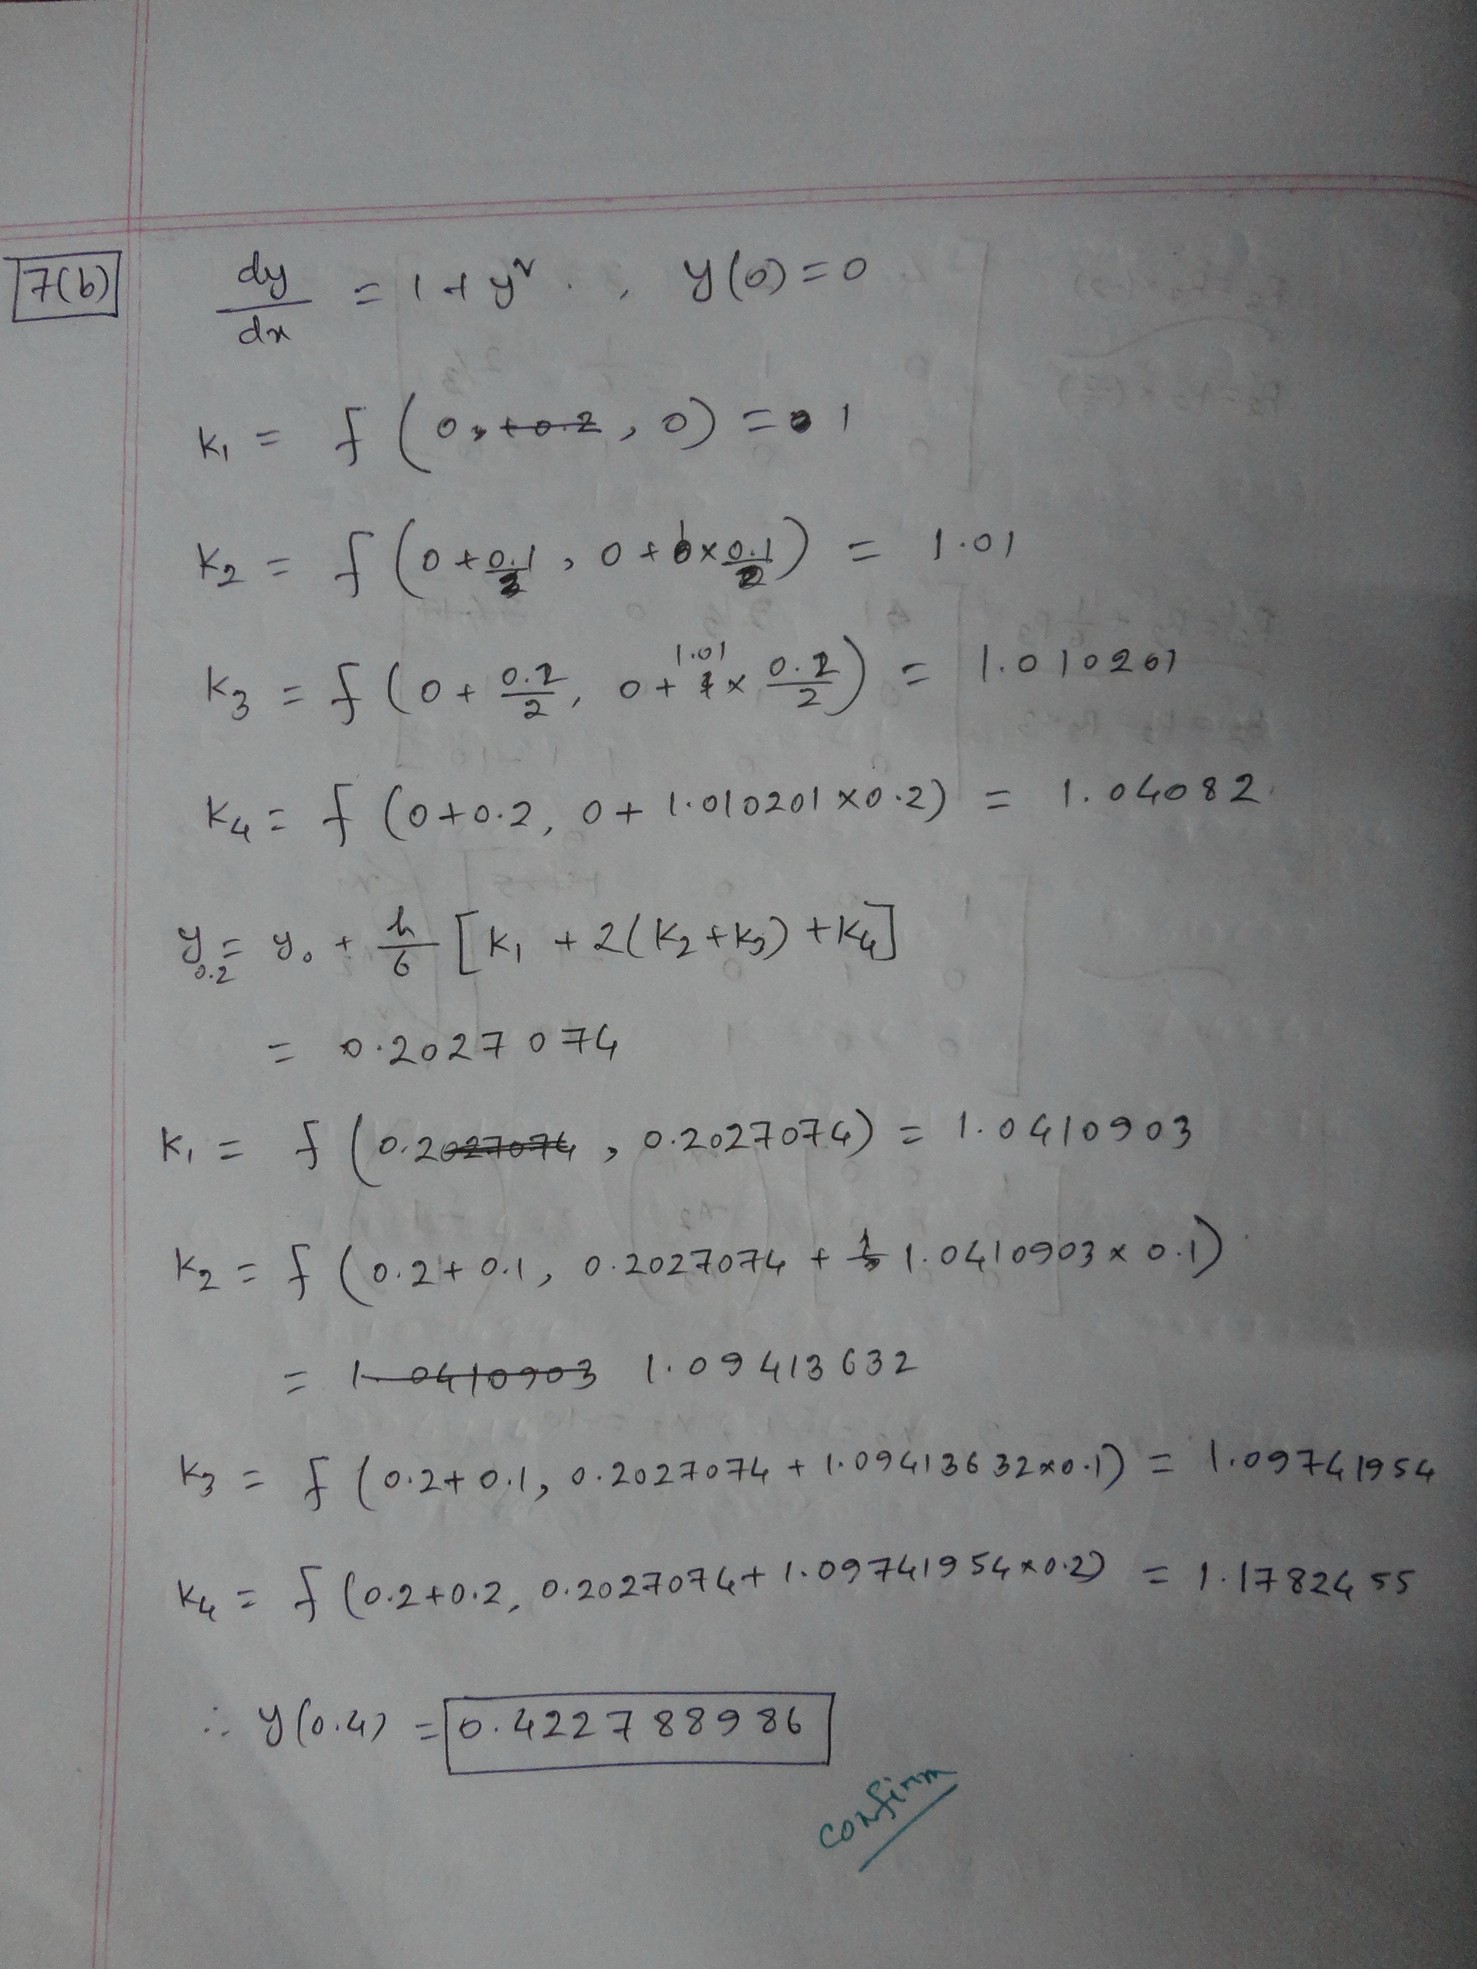 7(b) dy/dx = 1 + y² , y(0) = 0
K₁ = f(0, +0.2, 0) = 1
K₂ = f(0 + 0.1, 0 + 1 × 0.1) = 1.01
K₃ = f(0 + 0.2/2, 0 + 1.01 × 0.2/2) = 1.010201
K₄ = f(0+0.2, 0 + 1.010201 × 0.2) = 1.04082
y₀.₂ = y₀ + h/6 [K₁ + 2(K₂ + K₃) + K₄]
= 0.2027074
K₁ = f(0.2027074, 0.2027074) = 1.0410903
K₂ = f(0.2 + 0.1, 0.2027074 + 1.0410903 × 0.1)
= 1.0410903 1.09413632
K₃ = f(0.2+0.1, 0.2027074 + 1.09413632×0.1) = 1.09741954
K₄ = f(0.2+0.2, 0.2027074 + 1.09741954×0.2) = 1.1782455
∴ y(0.4) = 0.422788986
confirm